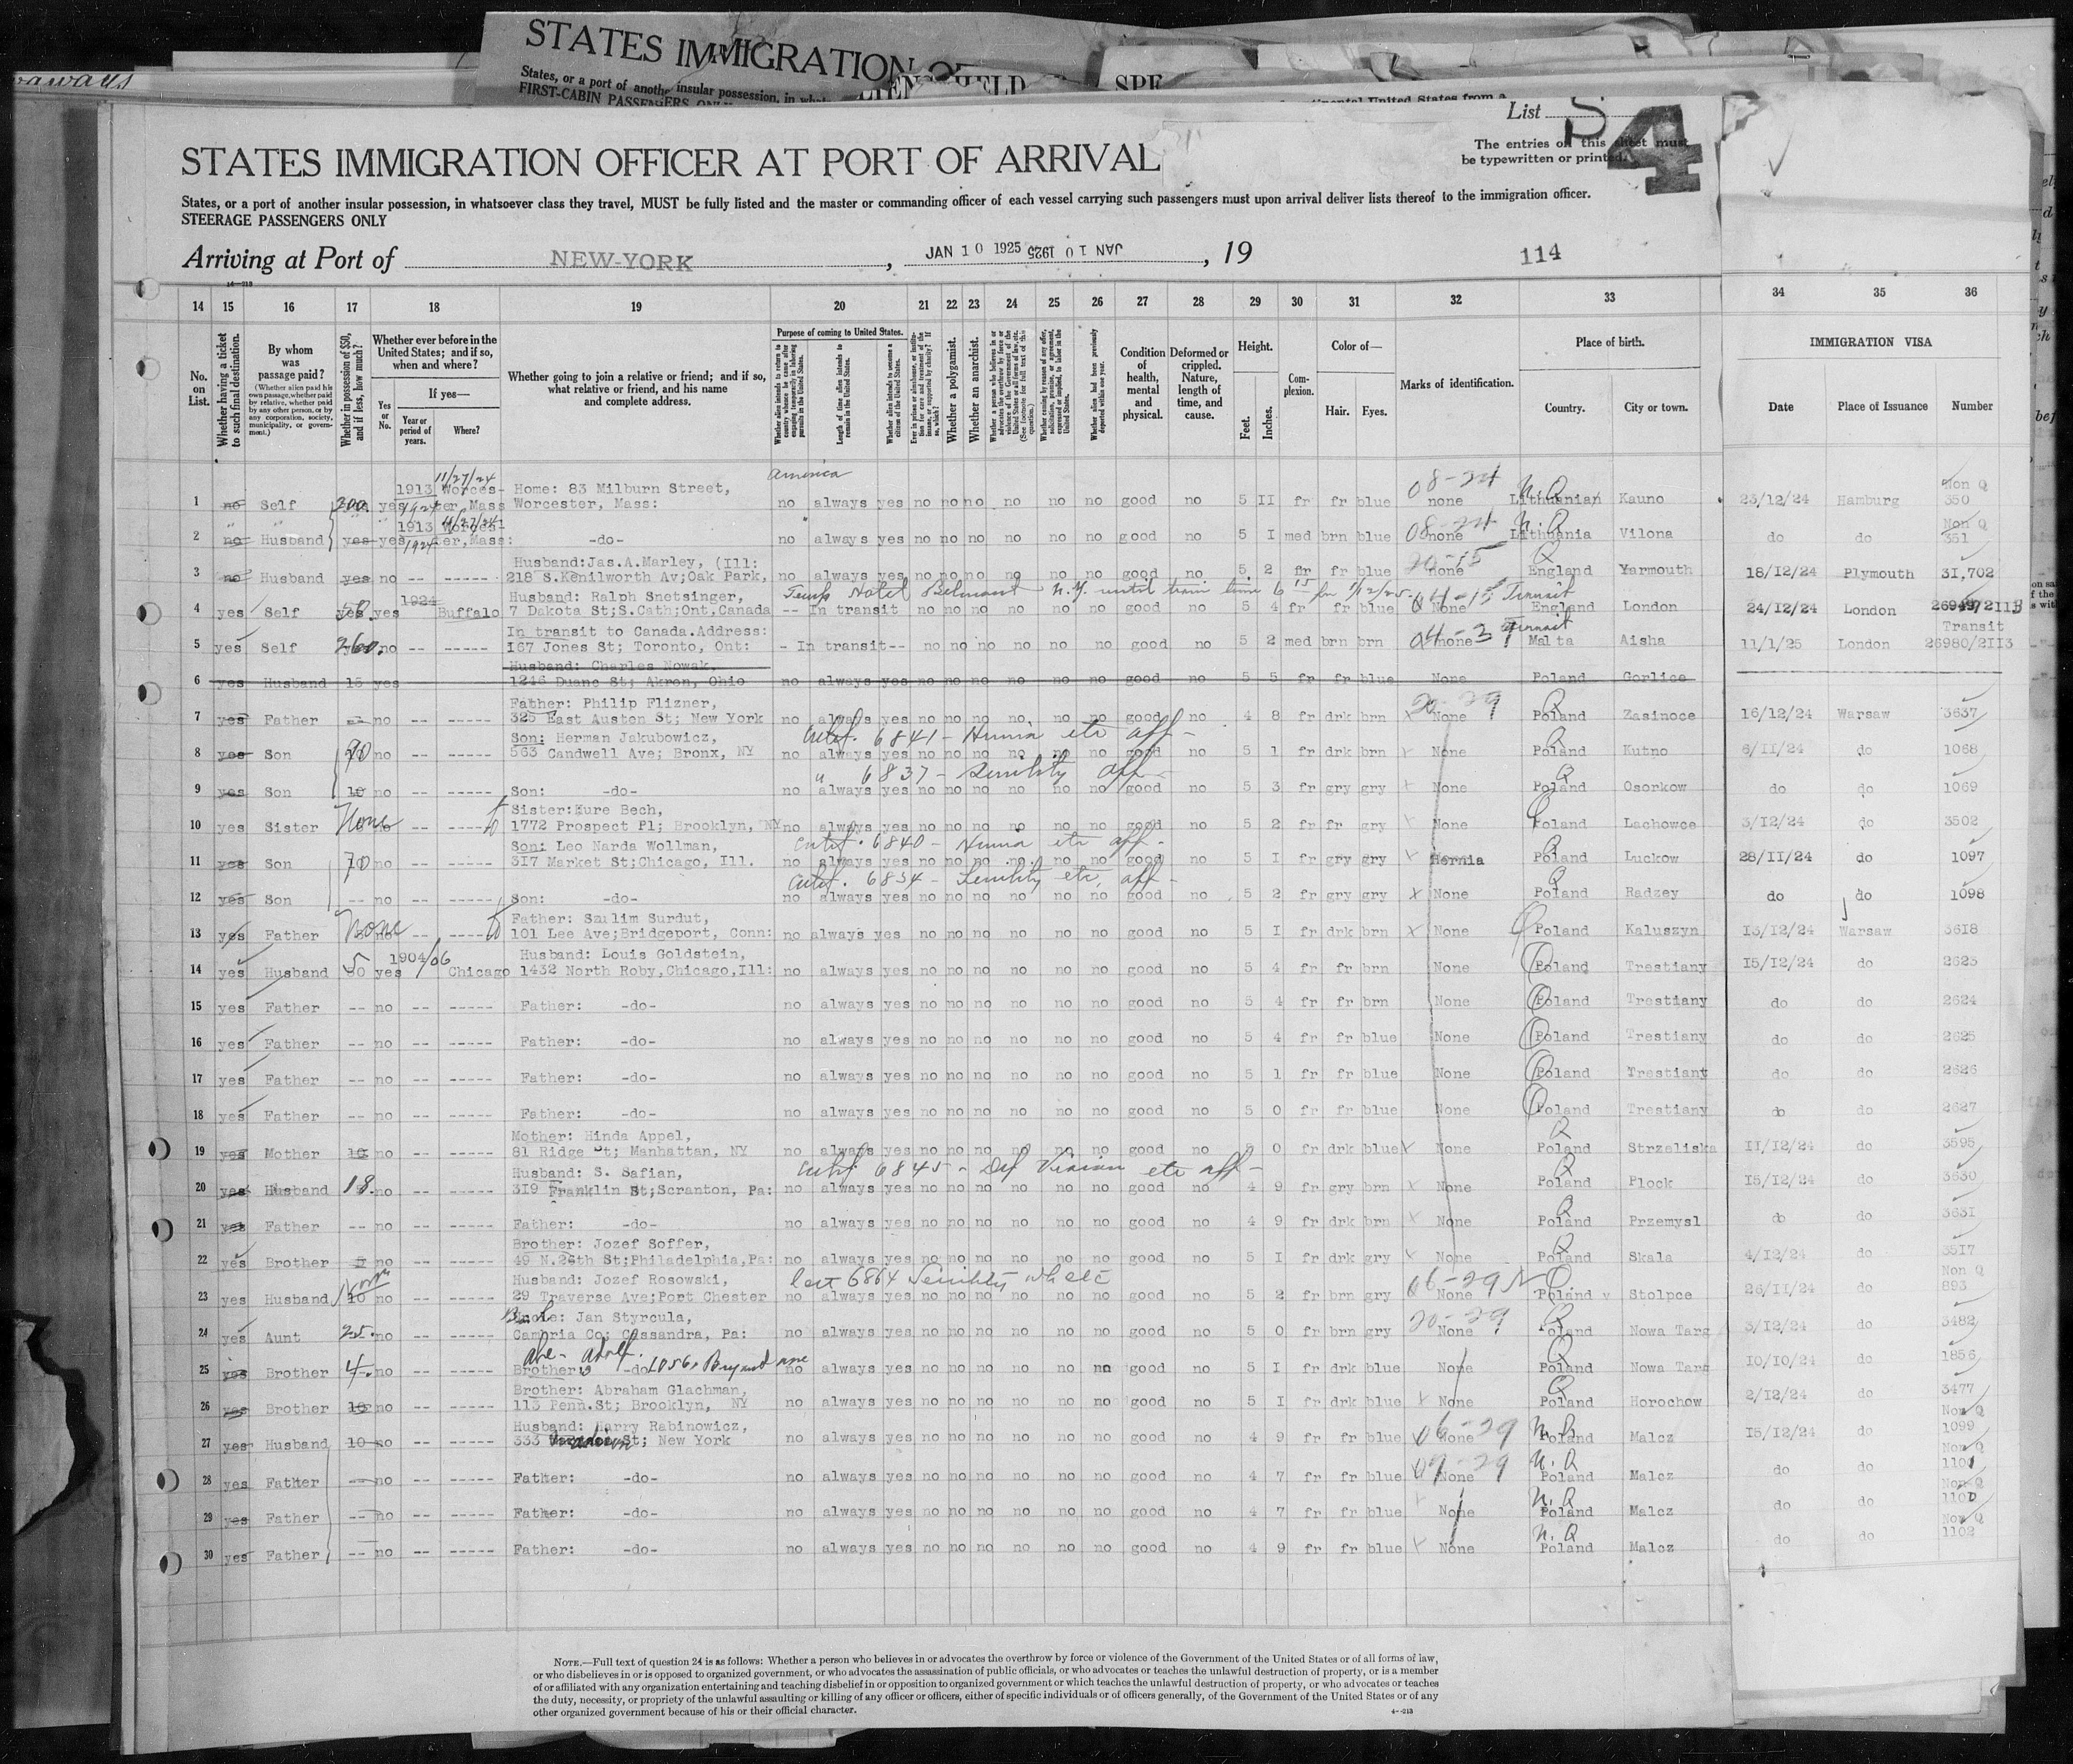 STATES IMMIGRATION
States, or a port of another insular possession, in
FIRST-CABIN PASSENGERS ONLY
List
S 4
The entries on this sheet must
be typewritten or printed.
STATES IMMIGRATION OFFICER AT PORT OF ARRIVAL
States, or a port of another insular possession, in whatsoever class they travel, MUST be fully listed and the master or commanding officer of each vessel carrying such passengers must upon arrival deliver lists thereof to the immigration officer.
STEERAGE PASSENGERS ONLY
Arriving at Port of NEW-YORK, JAN 10 1925 JAN 10 1925, 19 114
14 15 16 17 18 19 20 21 22 23 24 25 26 27 28 29 30 31 32 33 34 35 36
No. on List.
Whether having a ticket to such final destination.
By whom was passage paid?
(Whether alien paid his own passage, whether paid by relative, whether paid by any other person, or by any corporation, society, municipality, or government.)
Whether in possession of $50, and if less, how much?
Whether ever before in the United States; and if so, when and where?
Yes or No.
If yes—
Year or period of years.
Where?
Whether going to join a relative or friend; and if so, what relative or friend, and his name and complete address.
Purpose of coming to United States.
Length of time alien intends to remain in the United States.
Whether alien intends to become a citizen of the United States.
Whether a polygamist.
Whether an anarchist.
Condition of health, mental and physical.
Deformed or crippled. Nature, length of time, and cause.
Height.
Feet. Inches.
Complexion.
Color of—
Hair. Eyes.
Marks of identification.
Place of birth.
Country. City or town.
IMMIGRATION VISA
Date Place of Issuance Number
1 no Self 300 yes 1913 1924 11/27/24 Worcester, Mass Home: 83 Milburn Street, Worcester, Mass: America no always yes no no no no no no good no 5 II fr fr blue 08-24 none N.Q Lithuanian Kauno 23/12/24 Hamburg Non Q 350
2 no Husband yes yes 1913 1924 11/27/24 Worcester, Mass: -do- no always yes no no no no no no good no 5 I med brn blue 08-24 none N.Q Lithuania Vilona do do Non Q 351
3 no Husband yes no -- ----- Husband: Jas.A.Marley, (Ill: 218 S.Kenilworth Av;Oak Park, no always yes no no no no no no good no 5 2 fr fr blue 20-15 none Q England Yarmouth 18/12/24 Plymouth 31,702
Temp Hotel Belmont N.Y. until train time
4 yes Self 50. yes 1924 Buffalo Husband: Ralph Snetsinger, 7 Dakota St;S.Cath;Ont,Canada -- In transit no no no no no no good no 5 4 fr fr blue 04-15 None Transit England London 24/12/24 London 26949/2113
5 yes Self 260. no -- ----- In transit to Canada.Address: I67 Jones St; Toronto, Ont: - In transit-- no no no no no no good no 5 2 med brn brn 04-37 none Transit Malta Aisha 11/1/25 London Transit 26980/2II3
6 yes Husband 15 yes Husband: Charles Nowak, 1246 Duane St; Akron, Ohio no always yes no no no no no no good no 5 5 fr fr blue None Poland Gorlice
7 yes Father -- no -- ----- Father: Philip Flizner, 325 East Austen St; New York no always yes no no no no no no good no 4 8 fr drk brn 20-29 None Q Poland Zasinoce 16/12/24 Warsaw 3637
Certif. 6841 - Hernia etc aff -
8 yes Son 20 no -- ----- Son: Herman Jakubowicz, 563 Candwell Ave; Bronx, NY no always yes no no no no no no good no 5 1 fr drk brn None Q Poland Kutno 6/11/24 do 1068
" 6837 - Senility aff -
9 yes Son 10 no -- ----- Son: -do- no always yes no no no no no no good no 5 3 fr gry gry None Q Poland Osorkow do do 1069
10 yes Sister None no -- ----- Sister:Kure Bech, 1772 Prospect Pl; Brooklyn, NY no always yes no no no no no no good no 5 2 fr fr gry None Poland Lachowce 3/12/24 do 3502
Certif. 6840 - Hernia etc aff -
11 yes Son 70 no -- ----- Son: Leo Narda Wollman, 3I7 Market St;Chicago, Ill. no always yes no no no no no no good no 5 I fr gry gry Hernia Q Poland Luckow 28/II/24 do 1097
Certif. 6834 - Senility etc, aff -
12 yes Son -- no -- ----- Son: -do- no always yes no no no no no no good no 5 2 fr gry gry None Q Poland Radzey do do 1098
13 yes Father None no -- ----- Father: Szulim Surdut, 101 Lee Ave;Bridgeport, Conn: no always yes no no no no no no good no 5 I fr drk brn None Poland Kaluszyn 13/12/24 Warsaw 3618
14 yes Husband 5 yes 1904/06 Chicago Husband: Louis Goldstein, 1432 North Roby,Chicago,Ill: no always yes no no no no no no good no 5 4 fr fr brn None Poland Trestiany I5/12/24 do 2623
15 yes Father -- no -- ----- Father: -do- no always yes no no no no no no good no 5 4 fr fr brn None Poland Trestiany do do 2624
16 yes Father -- no -- ----- Father: -do- no always yes no no no no no no good no 5 4 fr fr blue None Poland Trestiany do do 2625
17 yes Father -- no -- ----- Father: -do- no always yes no no no no no no good no 5 1 fr fr blue None Poland Trestiany do do 2626
18 yes Father -- no -- ----- Father: -do- no always yes no no no no no no good no 5 0 fr fr blue None Poland Trestiany do do 2627
19 yes Mother 10 no -- ----- Mother: Hinda Appel, 81 Ridge St; Manhattan, NY no always yes no no no no no no good no 5 0 fr drk blue None Q Poland Strzeliska II/12/24 do 3595
Certif 6845 - Def Vision etc aff -
20 yes Husband 18. no -- ----- Husband: S. Safian, 319 Franklin St;Scranton, Pa: no always yes no no no no no no good no 4 9 fr gry brn None Q Poland Plock I5/12/24 do 3630
21 yes Father -- no -- ----- Father: -do- no always yes no no no no no no good no 4 9 fr drk brn None Q Poland Przemysl do do 3631
22 yes Brother no -- ----- Brother: Jozef Soffer, 49 N.26th St;Philadelphia,Pa: no always yes no no no no no no good no 5 I fr drk gry None Q Poland Skala 4/12/24 do 3517
6864 Senility
23 yes Husband 10 no -- ----- Husband: Jozef Rosowski, 29 Traverse Ave;Port Chester no always yes no no no no no no good no 5 2 fr brn gry 06-29 None N Q. Poland Stolpce 26/II/24 do Non Q 893
24 yes Aunt 25. no -- ----- Uncle: Jan Styrcula, Cambria Co; Cassandra, Pa: no always yes no no no no no no good no 5 0 fr brn gry 20-29 None Q Poland Nowa Targ 3/12/24 do 3482
25 yes Brother 4. no -- ----- Brother: -do- 1056. Bryant ave no always yes no no no no no no good no 5 I fr drk blue None Q Poland Nowa Targ I0/10/24 do 1856
26 yes Brother 10 no -- ----- Brother: Abraham Glachman, 113 Penn.St; Brooklyn, NY no always yes no no no no no no good no 5 I fr drk blue None Q Poland Horochow 2/12/24 do 3477
27 yes Husband 10 no -- ----- Husband: Harry Rabinowicz, 333 Madison St; New York no always yes no no no no no no good no 4 9 fr fr blue 06-29 None N.Q Poland Malcz I5/12/24 do Non Q 1099
28 yes Father -- no -- ----- Father: -do- no always yes no no no no no no good no 4 7 fr fr blue 07-29 None N.Q Poland Malcz do do Non Q 1101
29 yes Father -- no -- ----- Father: -do- no always yes no no no no no no good no 4 7 fr fr blue None N.Q Poland Malcz do do Non Q 1100
30 yes Father -- no -- ----- Father: -do- no always yes no no no no no no good no 4 9 fr fr blue None N.Q Poland Malcz do do Non Q 1102
NOTE.—Full text of question 24 is as follows: Whether a person who believes in or advocates the overthrow by force or violence of the Government of the United States or of all forms of law,
or who disbelieves in or is opposed to organized government, or who advocates the assassination of public officials, or who advocates or teaches the unlawful destruction of property, or is a member
of or affiliated with any organization entertaining and teaching disbelief in or opposition to organized government or which teaches the unlawful destruction of property, or who advocates or teaches
the duty, necessity, or propriety of the unlawful assaulting or killing of any officer or officers, either of specific individuals or of officers generally, of the Government of the United States or of any
other organized government because of his or their official character.